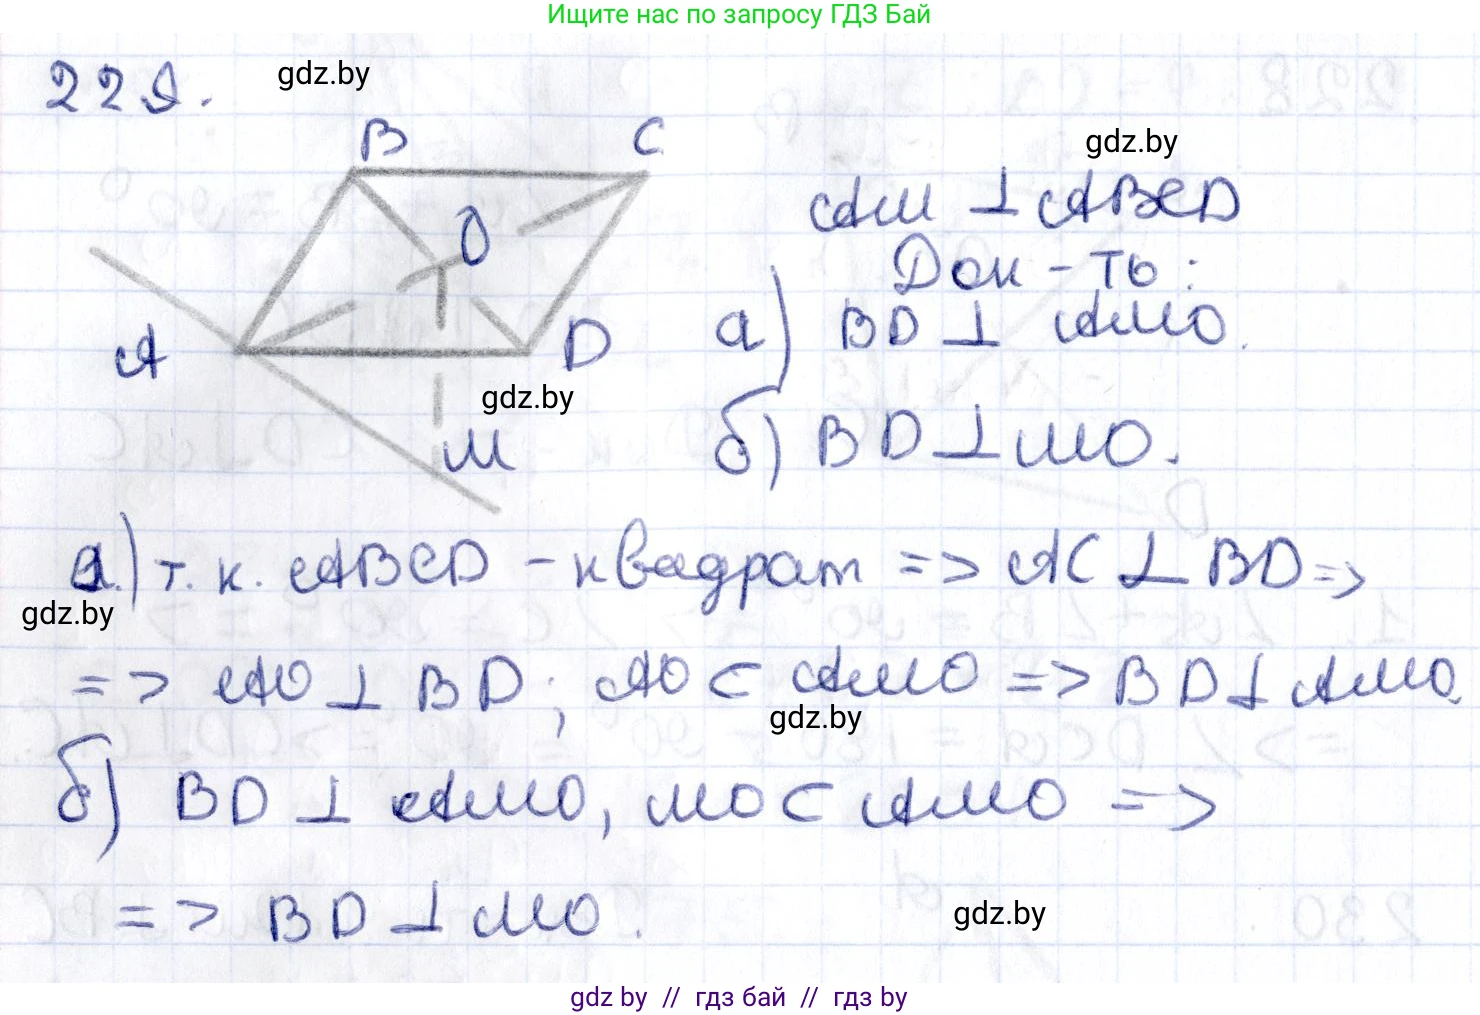 Ищите нас по запросу ГДЗ Бай
229.
gdz.by
B
C
gdz.by
AM ⊥ ABCD
O
Док-ть:
а) BD ⊥ AMO.
A
D
gdz.by
б) BD ⊥ MO.
M
а.) т.к. ABCD - квадрат => AC ⊥ BD =>
gdz.by
=> AO ⊥ BD; AO ⊂ AMO => BD ⊥ AMO.
gdz.by
б) BD ⊥ AMO, MO ⊂ AMO =>
=> BD ⊥ MO.
gdz.by
gdz by // гдз бай // гдз by